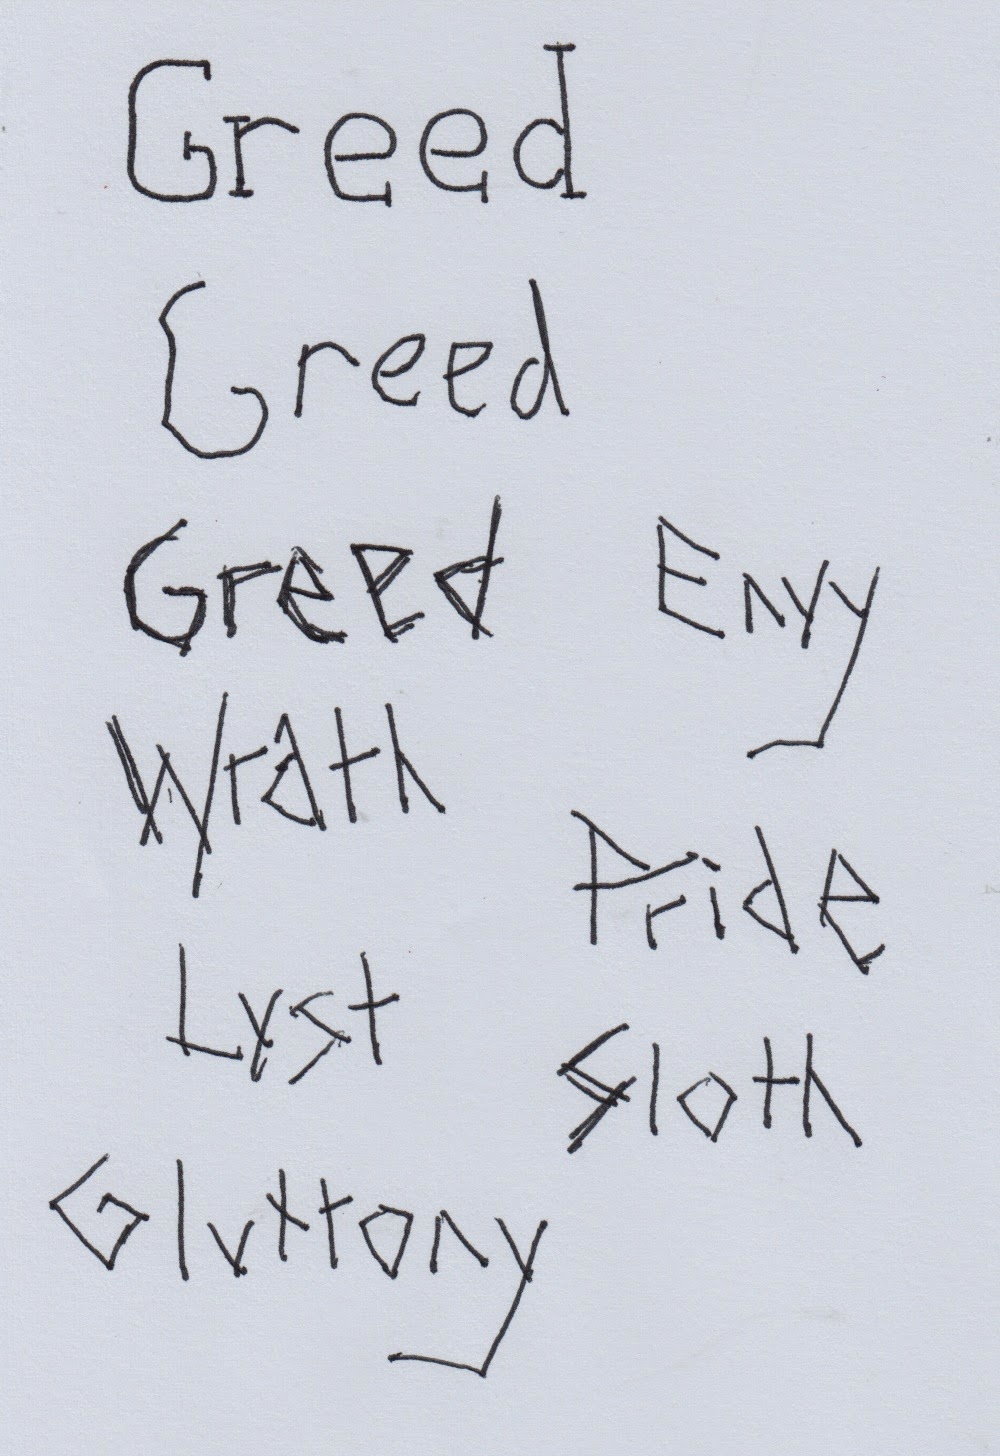 Greed
Greed
Greed Envy
Wrath
Pride
Lust
Sloth
Gluttony